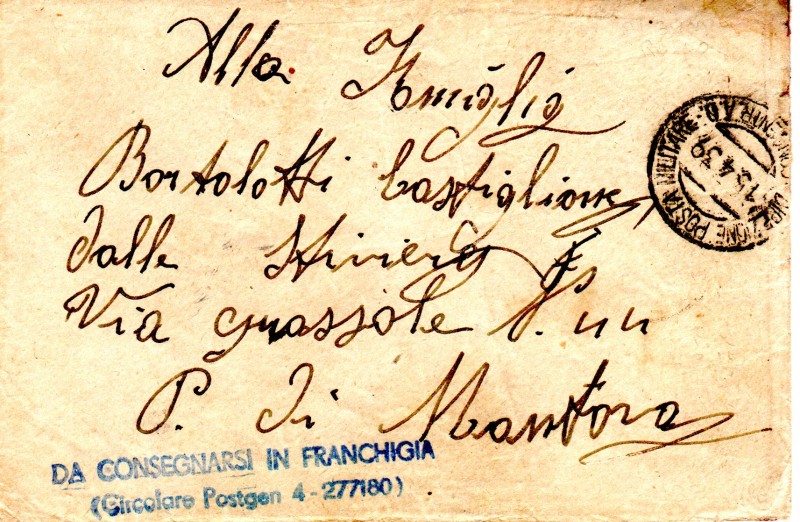 Alla Famiglia
Bortolotti Castiglione
dalle Stiviere
Via grassole
P. di Mantova
DIREZIONE POSTA MILITARE
13.4.39
DA CONSEGNARSI IN FRANCHIGIA
(Circolare Postgen 4-277180)